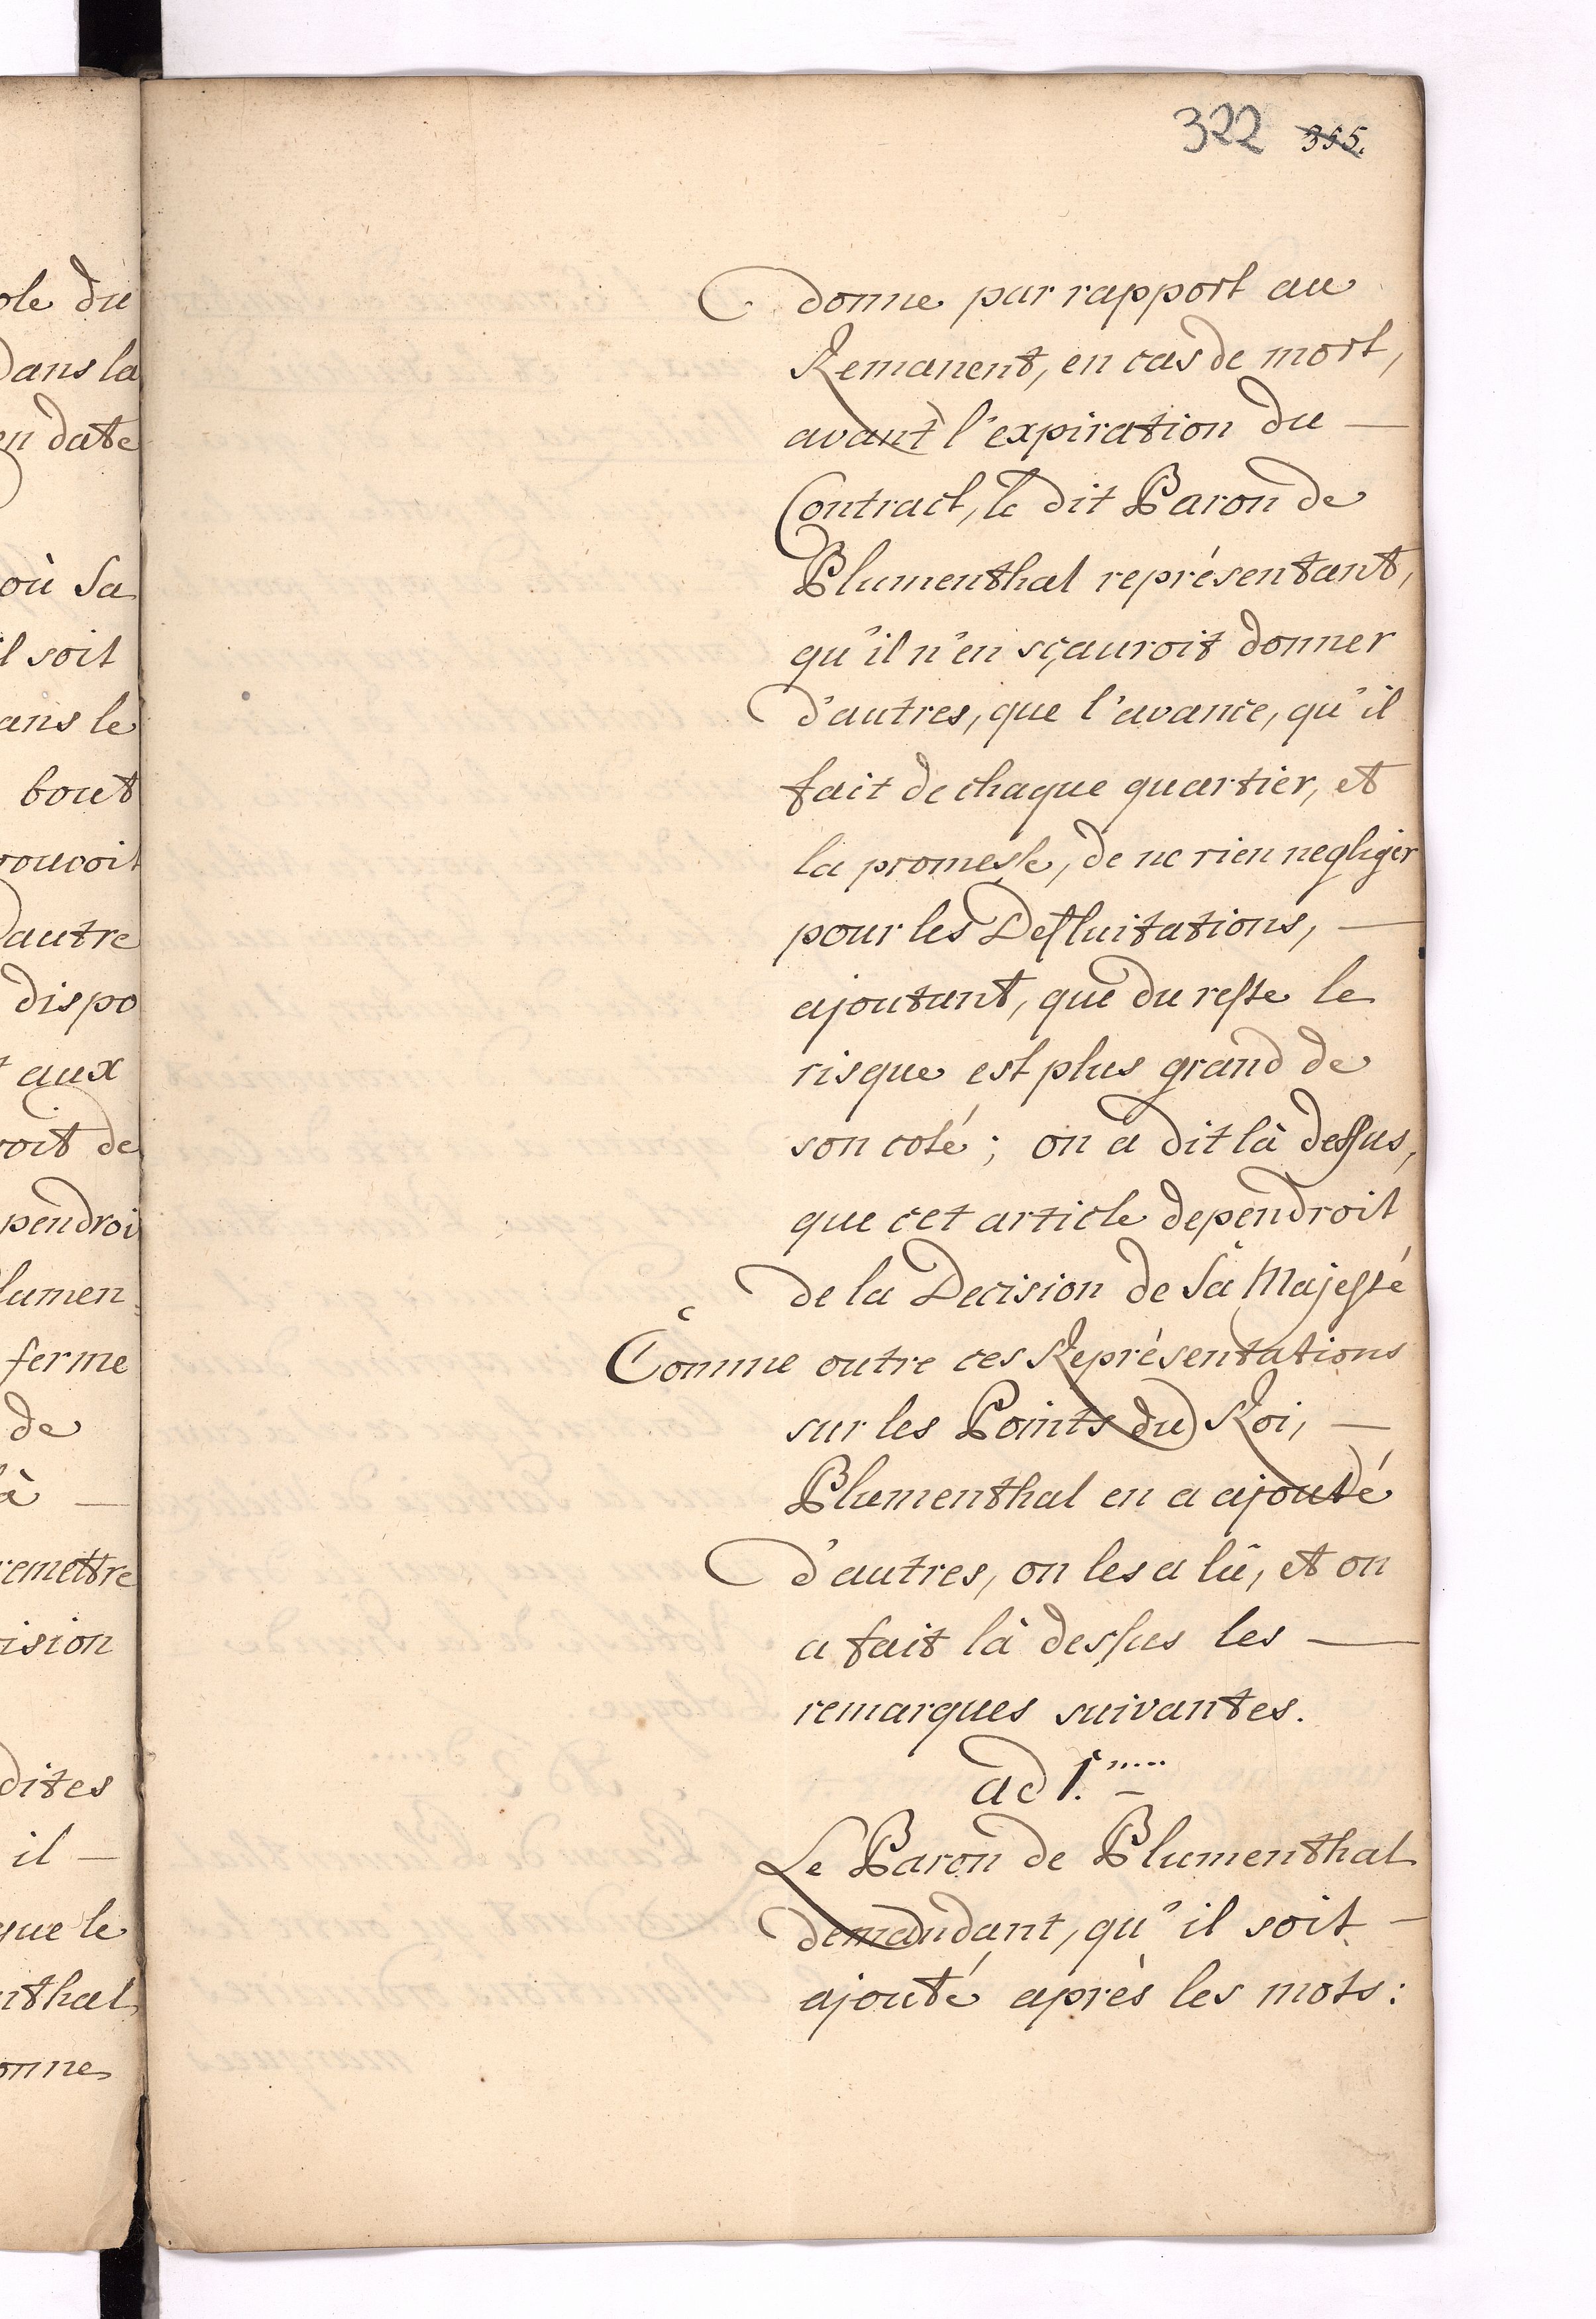 322 355.
ole du
dans la
en date
où Sa
il soit
ans le
bout
rouvoit
d'autre
dispo
t aux
roit de
pendroi
lumen
ferme
de
là —
remettre
ision
dites
il —
que le
nthal
onne
donne par rapport au
Remanent, en cas de mort,
avant l'expiration du —
Contract, le dit Baron de
Blumenthal représentant,
qu'il n'en sçauroit donner
d'autres, que l'avance, qu'il
fait de chaque quartier, et
la promesse, de ne rien negliger
pour les Defluitations, —
ajoutant, que du reste le
risque est plus grand de
son coté; on a dit là dessus,
que cet article dependroit
de la Decision de Sa Majesté
Comme outre ces Représentations
sur les Points du Roi, —
Blumenthal en a ajouté
d'autres, on les a lû, et on
a fait là dessus les —
remarques suivantes.
ad 1.
Le Baron de Blumenthal
demandant, qu'il soit —
ajouté après les mots: